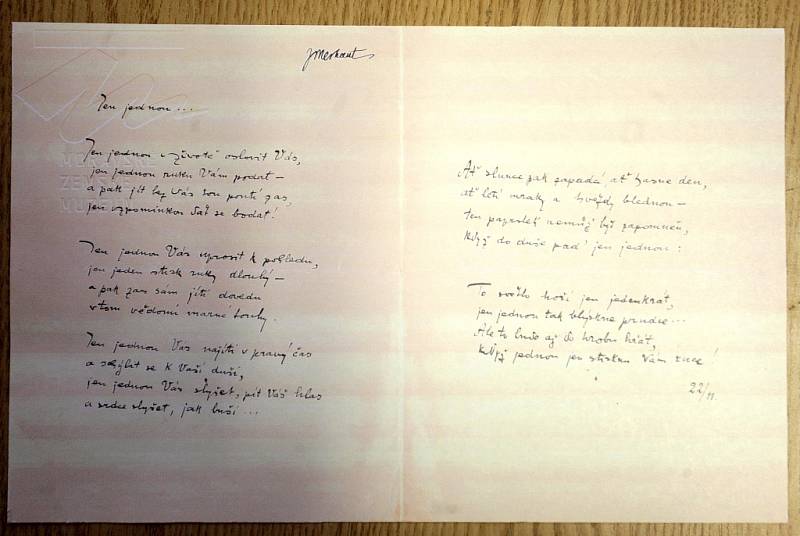 JMerhaut
Jen jednou...
MORAVSKÉ
ZEMSKÉ
MUZEUM
Jen jednou v životě oslovit Vás,
jen jednou ruku Vám podat –
a pak jít bez Vás tou poutí zas,
jen vzpomínkou dát se bodat!
Jen jednou Vás uprosit k pohledu,
jen jeden stisk ruky dlouhý –
a pak zas sám jíti dovedu
v tom vědomí marné touhy.
Jen jednou Vás najíti v pravý čas
a schýlit se k Vaší duši,
jen jednou Vás slyšet, pít Váš hlas
a srdce slyšet, jak buší...
Ať slunce pak zapadá, ať hasne den,
ať letí mraky a hvězdy blednou –
ten paprslek nemůž být zapomněn,
když do duše pad' jen jednou:
To světlo hoří jen jedenkrát,
jen jednou tak blýskne prudce...
Ale to bude až do hrobu hřát,
když jednou jen stisknu Vám ruce!
22/11.